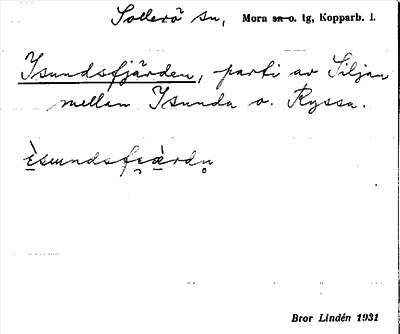 Sollerö sn, Mora sn o. tg, Kopparb. l.
Isundsfjärden, parti av Siljan
mellan Isunda o. Ryssa.
ɛ̀sundsfi̯æ̀rdn̥
Bror Lindén 1931